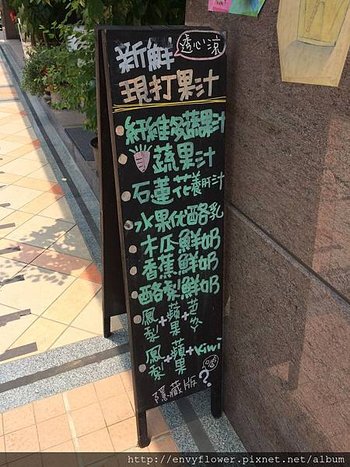 新鮮
透心涼
現打果汁
纖維多蔬果汁
蔬果汁
石蓮花養肝汁
水果优酪乳
木瓜鮮奶
香蕉鮮奶
酪梨鮮奶
鳳梨+蘋果+芭樂
鳳梨+蘋果+Kiwi
隱藏版?
http://envyflower.pixnet.net/album